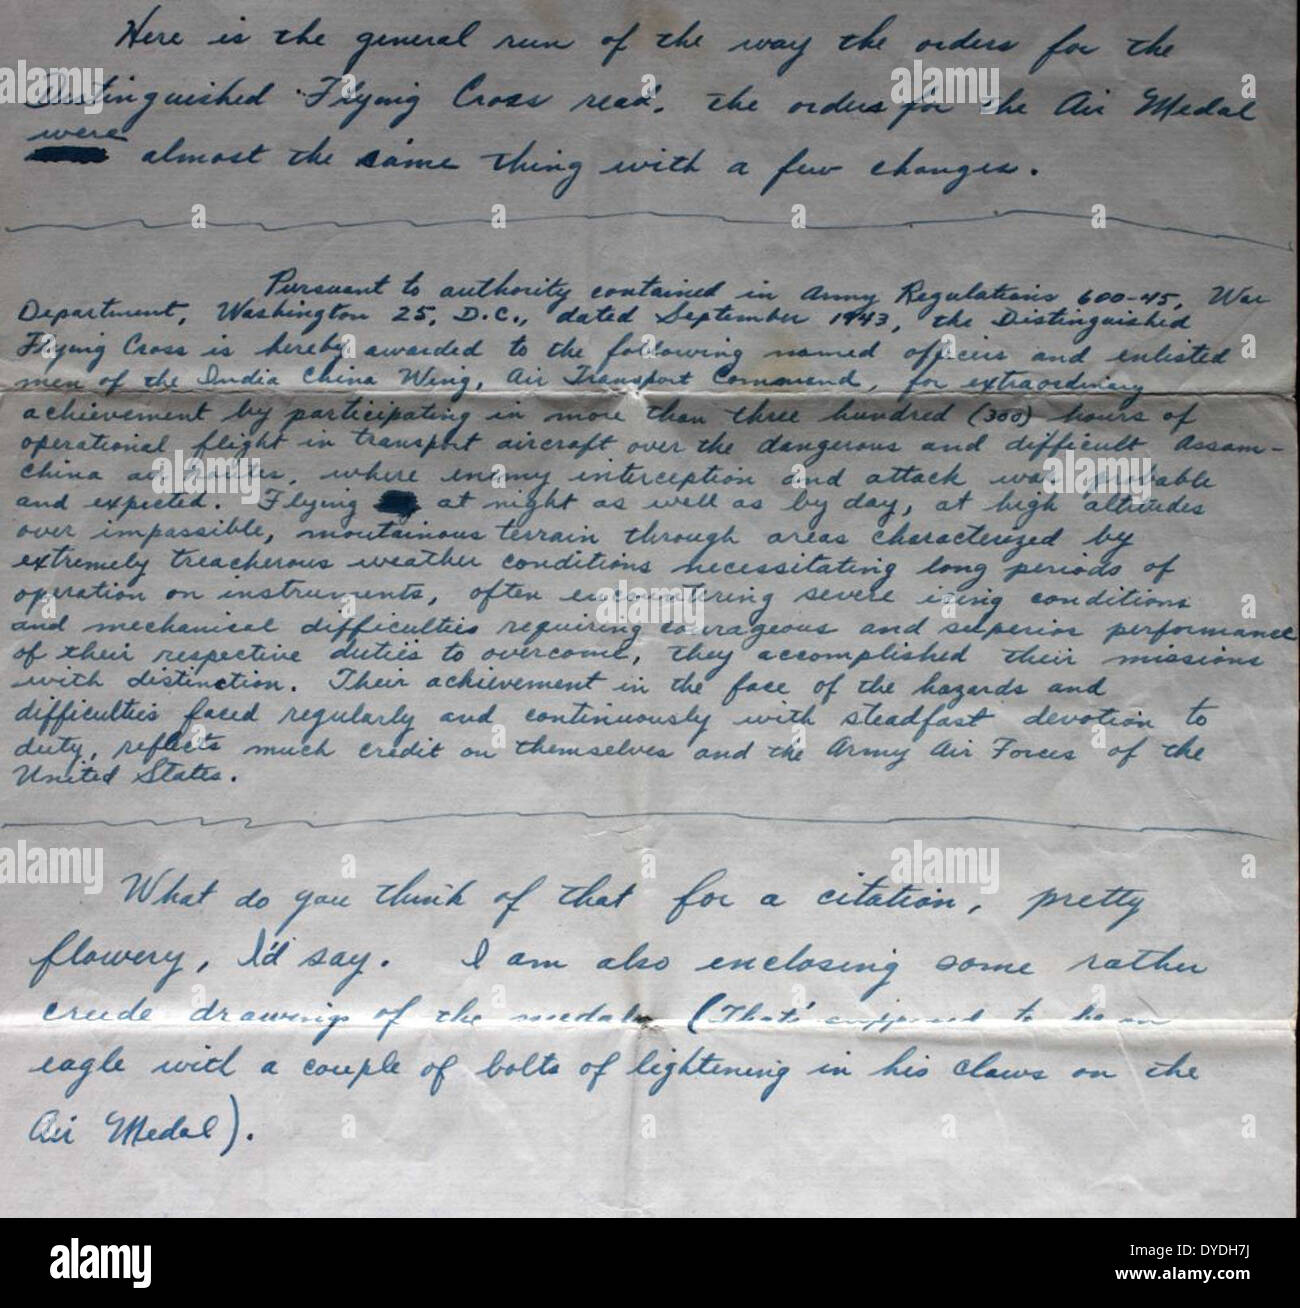 Here is the general run of the way the orders for the
Distinguished Flying Cross read. The orders for the Air Medal
were
almost the same thing with a few changes.
Pursuant to authority contained in Army Regulations 600-45, War
Department, Washington 25, D.C., dated September 1943, the Distinguished
Flying Cross is hereby awarded to the following named officers and enlisted
men of the India China Wing, Air Transport Command, for extraordinary
achievement by participating in more than three hundred (300) hours of
operational flight in transport aircraft over the dangerous and difficult Assam-
China air routes, where enemy interception and attack was probable
and expected. Flying at night as well as by day, at high altitudes
over impassible, moutainous terrain through areas characterized by
extremely treacherous weather conditions necessitating long periods of
operation on instruments, often encountering severe icing conditions
and mechanical difficulties requiring courageous and superior performance
of their respective duties to overcome, they accomplished their missions
with distinction. Their achievement in the face of the hazards and
difficulties faced regularly and continuously with steadfast devotion to
duty, reflects much credit on themselves and the Army Air Forces of the
United States.
What do you think of that for a citation, pretty
flowery, I'd say. I am also enclosing some rather
crude drawings of the medals (That's supposed to be an
eagle with a couple of bolts of lightening in his claws on the
Air Medal).
alamy
DYDH7J
www.alamy.com